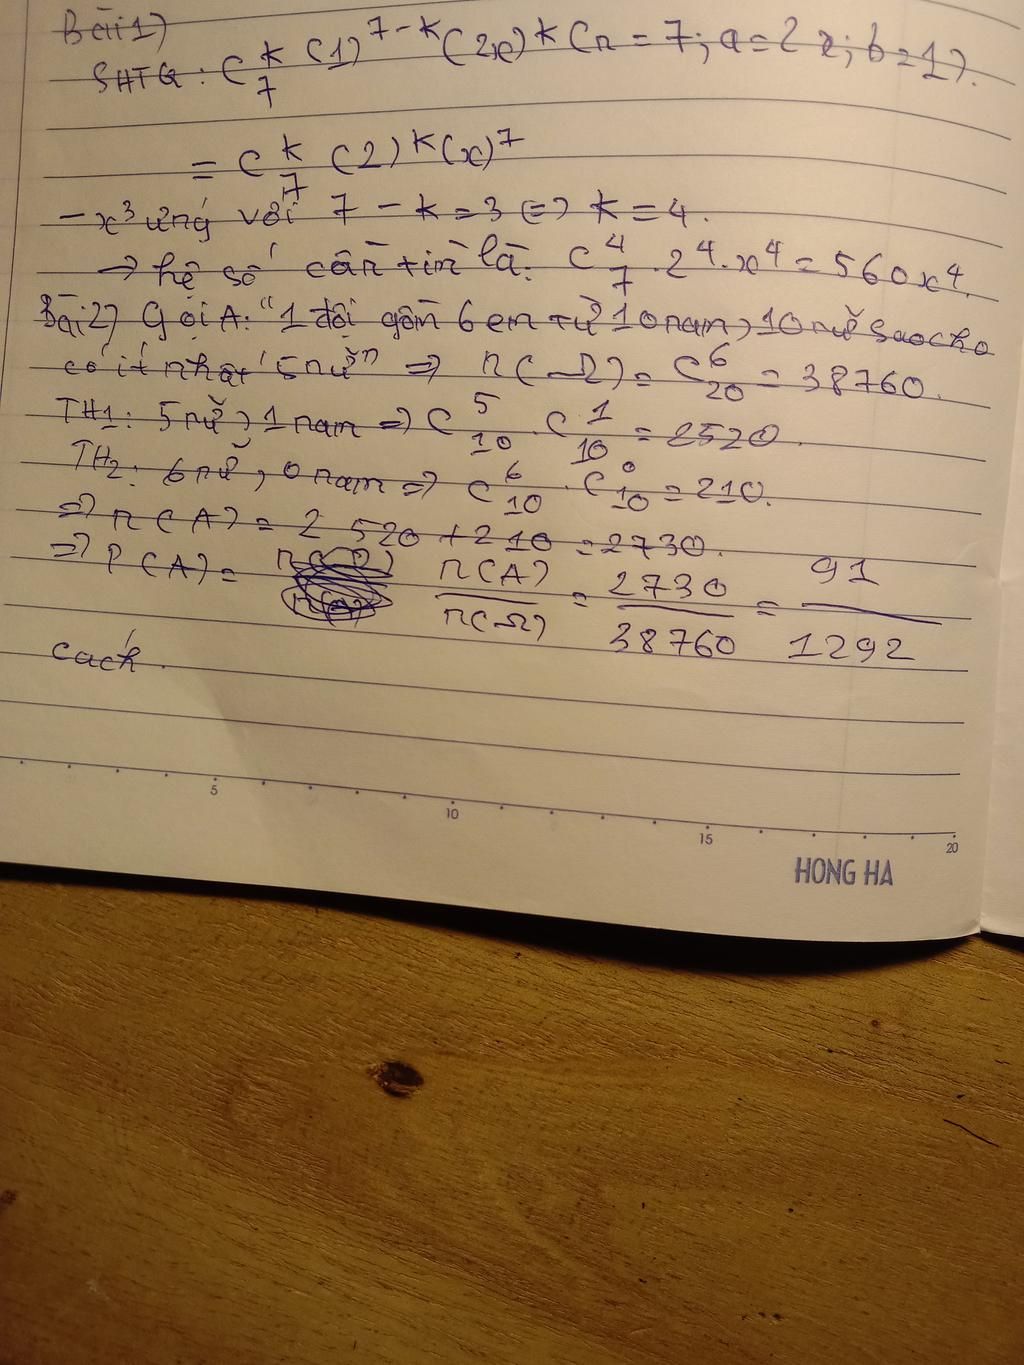 Bài 1)
SHTQ: C₇ᵏ (1)⁷⁻ᵏ (2x)ᵏ (n = 7; a = 2x; b = 1).
= C₇ᵏ (2)ᵏ (x)⁷
- x³ ứng với 7 - k = 3 ⇔ k = 4.
→ hệ số cần tìm là: C₇⁴ . 2⁴ . x⁴ = 560x⁴.
Bài 2) Gọi A: "1 đội gồm 6 em từ 10 nam, 10 nữ sao cho
có ít nhất 5 nữ" ⇒ n(Ω) = C₂₀⁶ = 38760.
TH1: 5 nữ, 1 nam ⇒ C₁₀⁵ . C₁₀¹ = 2520.
TH2: 6 nữ, 0 nam ⇒ C₁₀⁶ . C₁₀⁰ = 210.
⇒ n(A) = 2 520 + 210 = 2730.
⇒ P(A) = n(A)/n(Ω) = 2730/38760 = 91/1292
cách.
5 10 15 20
HONG HA